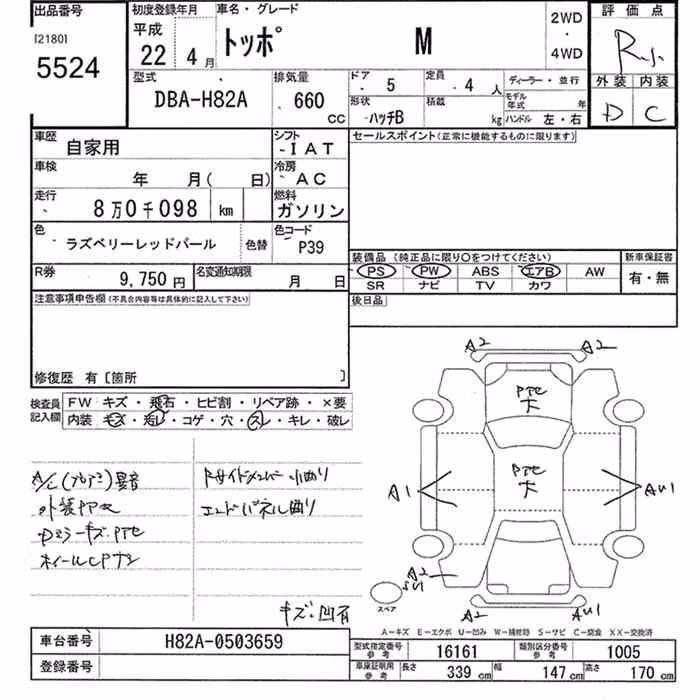 出品番号
[2180]
5524
初度登録年月
平成
22年 4月
車名・グレード
トッポ M
2WD
・
4WD
評価点
R
外装 内装
D C
型式
DBA-H82A
排気量
660
CC
ドア 5
定員 4 人
形状 ハッチB
積載 kg
ディーラー・並行
モデル年式 年
ハンドル 左・右
車歴 自家用
シフト
IAT
車検 年 月( 日)
冷房
AC
走行 8万0千098 km
燃料
ガソリン
色 ラズベリーレッドパール 色替
色コード
P39
R券 9,750円
名変通知期限 月 日
セールスポイント(正常に機能するものに限ります)
装備品 (純正品に限り○をつけてください)
PS PW ABS エアB AW
SR ナビ TV カワ
新車保証書
有・無
後日品
注意事項申告欄(不具合内容等は具体的に記入して下さい)
修復歴 有〔箇所 〕
検査員記入欄
FW キズ・飛石・ヒビ割・リペア跡・×要
内装 キズ・汚レ・コゲ・穴・スレ・キレ・破レ
A/C 異音
Rサイドメンバー 小曲り
外装
エンドパネル曲り
ドアミラーキズ
ホイール
キズ・凹有
A2 A2
A1 AU1
A2
A2 AU1
スペア
A-キズ E-エクボ U-凹み W-補修跡 S-サビ C-腐食 XX-交換済
車台番号 H82A-0503659
登録番号
型式指定番号 参考 16161
類別区分番号 参考 1005
車庫証明用 参考 長さ 339 cm 幅 147 cm 高さ 170 cm